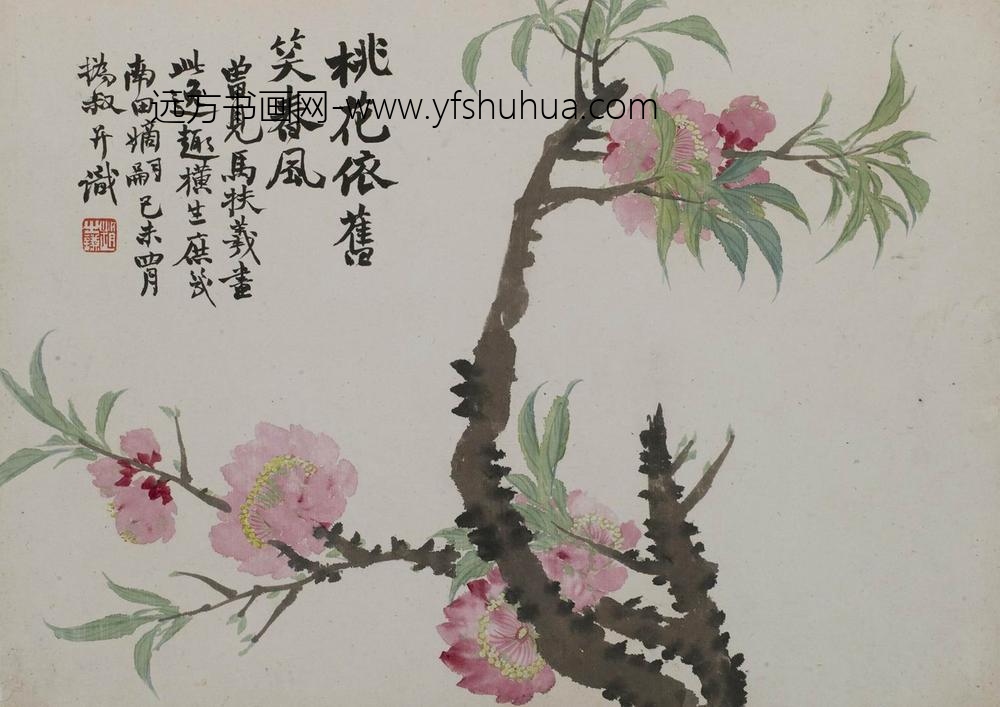 桃花依舊
笑春風
曾見馬扶羲畫
此趣橫生庶幾
南田嫡嗣己未四月
撝叔并識
趙之謙
远方书画网--www.yfshuhua.com